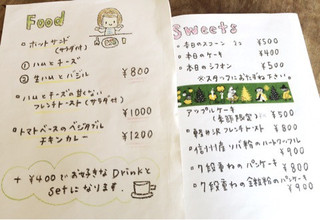 Food
・ホットサンド
(サラダ付)
① ハムとチーズ
② 生ハムとバジル ¥800
・ハムとチーズの甘くない
フレンチトースト(サラダ付)
¥1000
・トマトベースのベジタブル
チキンカレー ¥1200
+¥400でお好きなDrinkと
setになります。
Sweets
・本日のスコーン 2コ ¥500
・本日のケーキ ¥400
・本日のシフォン ¥500
※スタッフにおたずね下さい。
アップルケーキ
(季節限定) ¥500
・軽井沢フレンチトースト ¥800
・信州産ソバ粉のハートワッフル
¥900
・7段重ねのパンケーキ ¥800
・7段重ねの全粒粉のパンケーキ
¥900